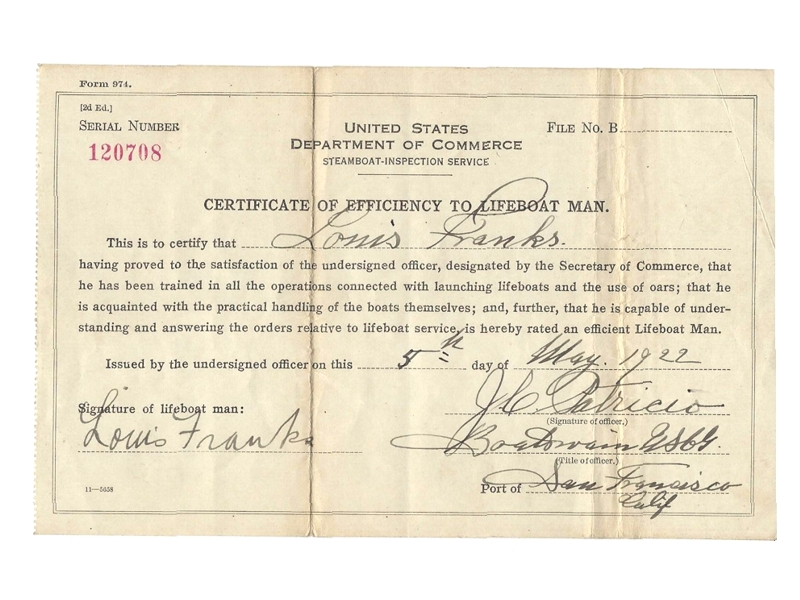 Form 974.
[2d Ed.]
SERIAL NUMBER
120708
UNITED STATES
DEPARTMENT OF COMMERCE
STEAMBOAT-INSPECTION SERVICE
FILE No. B
CERTIFICATE OF EFFICIENCY TO LIFEBOAT MAN.
This is to certify that Louis Franks.
having proved to the satisfaction of the undersigned officer, designated by the Secretary of Commerce, that
he has been trained in all the operations connected with launching lifeboats and the use of oars; that he
is acquainted with the practical handling of the boats themselves; and, further, that he is capable of under-
standing and answering the orders relative to lifeboat service, is hereby rated an efficient Lifeboat Man.
Issued by the undersigned officer on this 5th day of May. 1922
Signature of lifeboat man:
Louis Franks
J C Patricio
(Signature of officer.)
Boatswain USCG.
(Title of officer.)
Port of San Francisco
Calif
11—5658